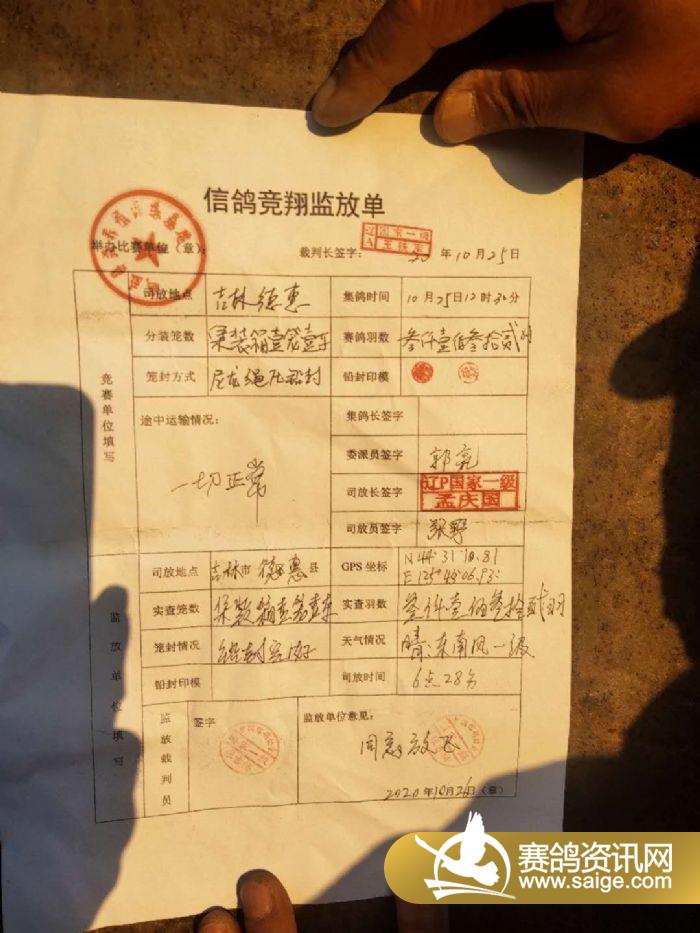 信鸽竞翔监放单
举办比赛单位（章）：
裁判长签字：
20 年 10 月 25 日
竞赛单位填写
司放地点 吉林德惠 集鸽时间 10月25日12时30分
分装笼数 集装箱壹笼壹车 赛鸽羽数 叁仟壹佰叁拾贰羽
笼封方式 尼龙绳 铅封 铅封印模
途中运输情况： 集鸽长签字
一切正常 委派员签字 郭亮
司放长签字 辽P国家一级
孟庆国
司放员签字
监放单位填写
司放地点 吉林市德惠县 GPS 坐标 N44°31′10.81
E125°49′06.93″
实查笼数 集装箱壹笼壹车 实查羽数 叁仟壹佰叁拾贰羽
笼封情况 铅封完好 天气情况 晴：东南风一级
铅封印模 司放时间 6点28分
监放裁判员 签字 监放单位意见：
同意放飞
2020年10月26日（章）
赛鸽资讯网
www.saige.com